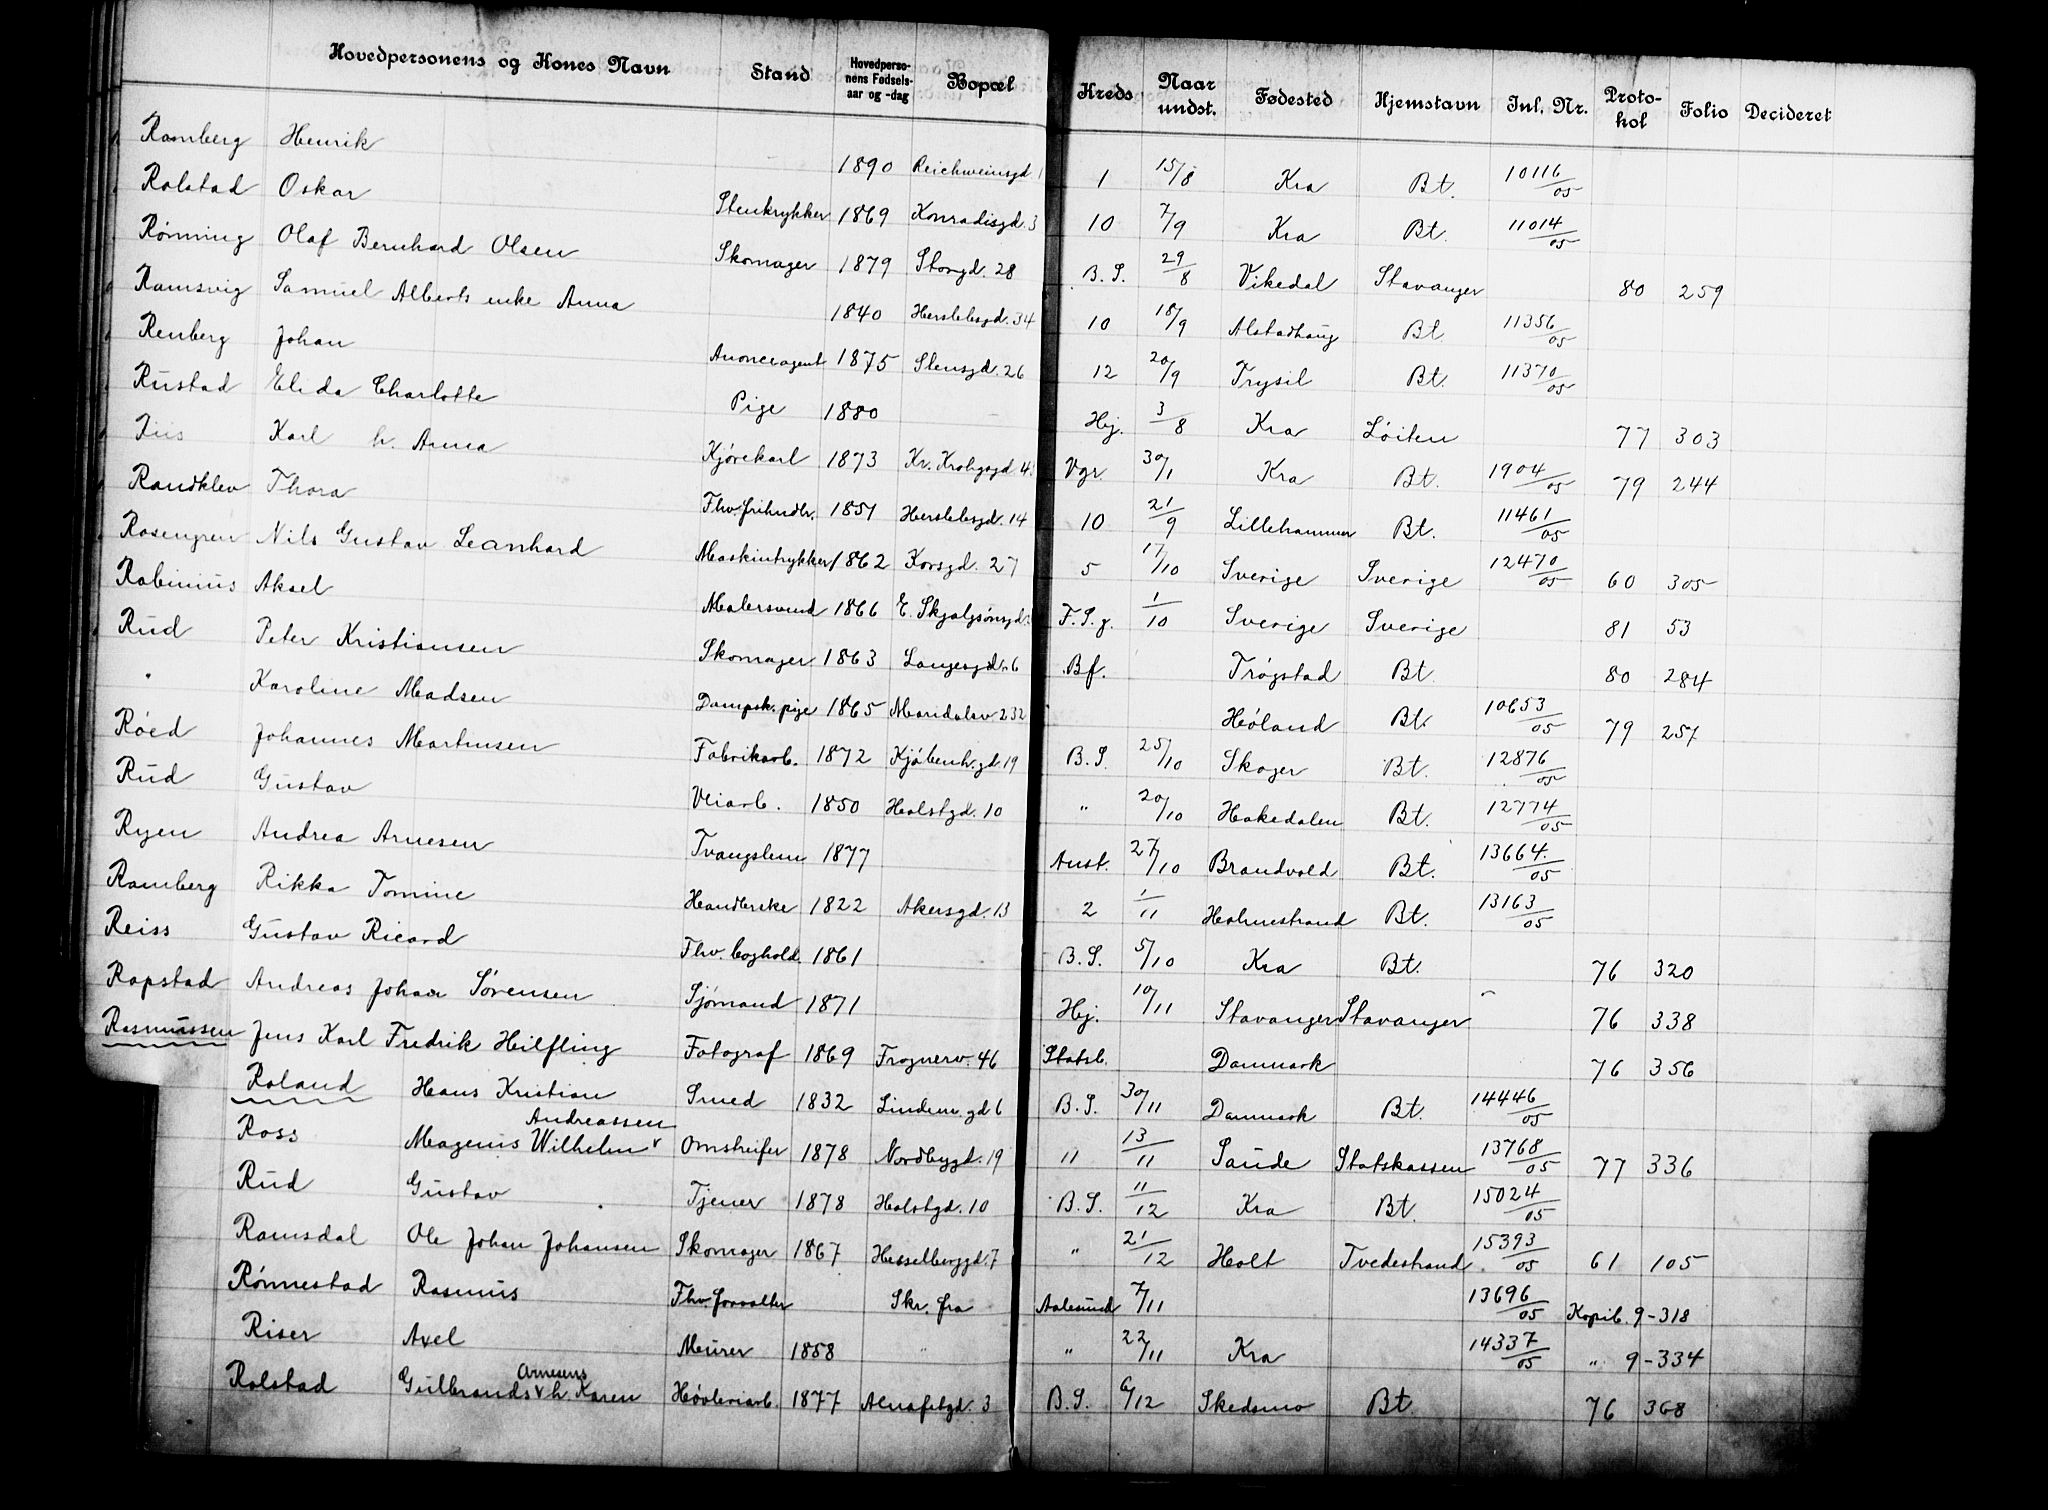 Hovedpersonens og Kones Navn Stand Hovedperso-nens Fødsels-aar og -dag Bopæl Kreds Naar undst. Fødested Hjemstavn Inl. Nr. Proto-kol Folio Decideret
Ramberg Henrik 1890 Reichweinsgd 1 1 15/8 Kra Bt. 10116/05
Rolstad Oskar Stenkrykker 1869 Konradisgd. 3 10 7/9 Kra Bt. 11014/05
Rønning Olaf Bernhard Olsen Skomager 1879 Storgd. 28 B. S. 29/8 Vikedal Stavanger 80 259
Ramsvig Samuel Alberts enke Anna 1840 Herslebsgd. 34 10 18/9 Alstadhaug Bt. 11356/05
Renberg Johan Anonceagent 1875 Stensgd. 26 12 20/9 Trysil Bt. 11370/05
Rustad Elida Charlotte Pige 1880 Hj. 3/8 Kra Løiten 77 303
Riis Karl h. Anna Kjørekarl 1873 Kr. Krohgsgd 4 Vgr. 30/1 Kra Bt. 1904/05 79 244
Randklev Thora Fhv. frihndl. 1851 Herslebsgd. 14 10 21/9 Lillehammer Bt. 11461/05
Rosengren Nils Gustav Leanhard Maskintrykker 1862 Korsgd. 27 5 17/10 Sverige Sverige 12470/05 60 305
Rabinius Aksel Malersvend 1866 E. Skjalgsønsgd. F. S. g. 1/10 Sverige Sverige 81 53
Rud Peter Kristiansen Skomager 1863 Langesgd. 6 Bf. Trøgstad Bt. 80 284
" Karoline Madsen Dampsk. pige 1865 Maridalsv 232 Høland Bt. 10653/05 79 257
Røed Johannes Martinsen Fabrikarb. 1872 Kjøbenh. gd. 19 B. S. 25/10 Skoger Bt. 12876/05
Rud Gustav Veiarb. 1850 Holstgd. 10 " 20/10 Hakedalen Bt. 12774/05
Ryen Andrea Arnesen Tvangslem 1877 Anst. 27/10 Brandvold Bt. 13664./05
Ramberg Rikka Tomine Handlerske 1822 Akersgd. 13 2 1/11 Holmestrand Bt. 13163/05
Reiss Gustav Ricard Fhv. boghold. 1861 B. S. 5/10 Kra Bt. 76 320
Ropstad Andreas Johan Sørensen Sjømand 1871 Hj. 10/11 Stavanger Stavanger 76 338
Rasmussen Jens Karl Fredrik Heilfling Fotograf 1869 Frognerv. 46 Statsb. Danmark 76 356
Roland Hans Kristian Smed 1832 Lindem. gd 6 B. S. 30/11 Danmark Bt. 14446/05
Andreassen
Ross Magnus Wilhelm v Omstreifer 1878 Nordbygd. 19 11 13/11 Saude Statskassen 13768/05 77 336
Rud Gustav Tjener 1878 Holstgd. 10 B. S. 11/12 Kra Bt. 15024/05
Ramsdal Ole Johan Johansen Skomager 1867 Hesselberggd. 7 " 21/12 Holt Tvedestrand 15393/05 61 105
Rønnestad Rasmus Fhv. forvalter Skr. fra Aalesund 7/11 13696/05 Kopib. 9-318
Riser Axel Murer 1858 " " 22/11 Kra 14337/05 " 9-334
Arnesens
Rolstad Gulbrands v h. Karen Høvleriarb. 1877 Almafetgd. 3 B. S. 6/12 Skedsmo Bt. 76 368